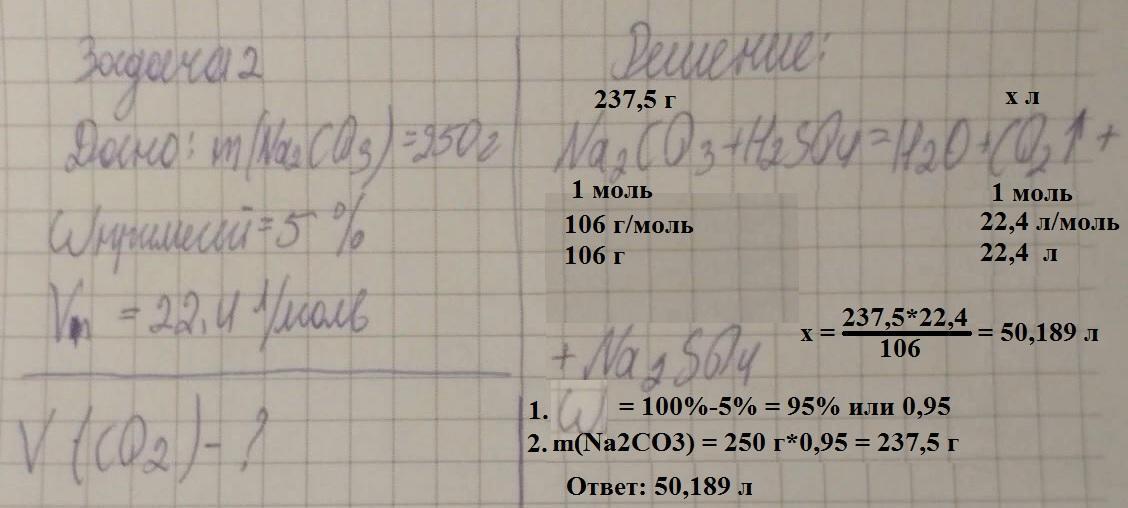 Задача 2
Дано: m(Na2CO3)=250г
Wпримесей=5%
Vm = 22,4 л/моль
V(CO2)-?
Решение:
237,5 г х л
Na2CO3+H2SO4=H2O+CO2↑+
1 моль 1 моль
106 г/моль 22,4 л/моль
106 г 22,4 л
+Na2SO4
х = 237,5*22,4/106 = 50,189 л
1. W = 100%-5% = 95% или 0,95
2. m(Na2CO3) = 250 г*0,95 = 237,5 г
Ответ: 50,189 л